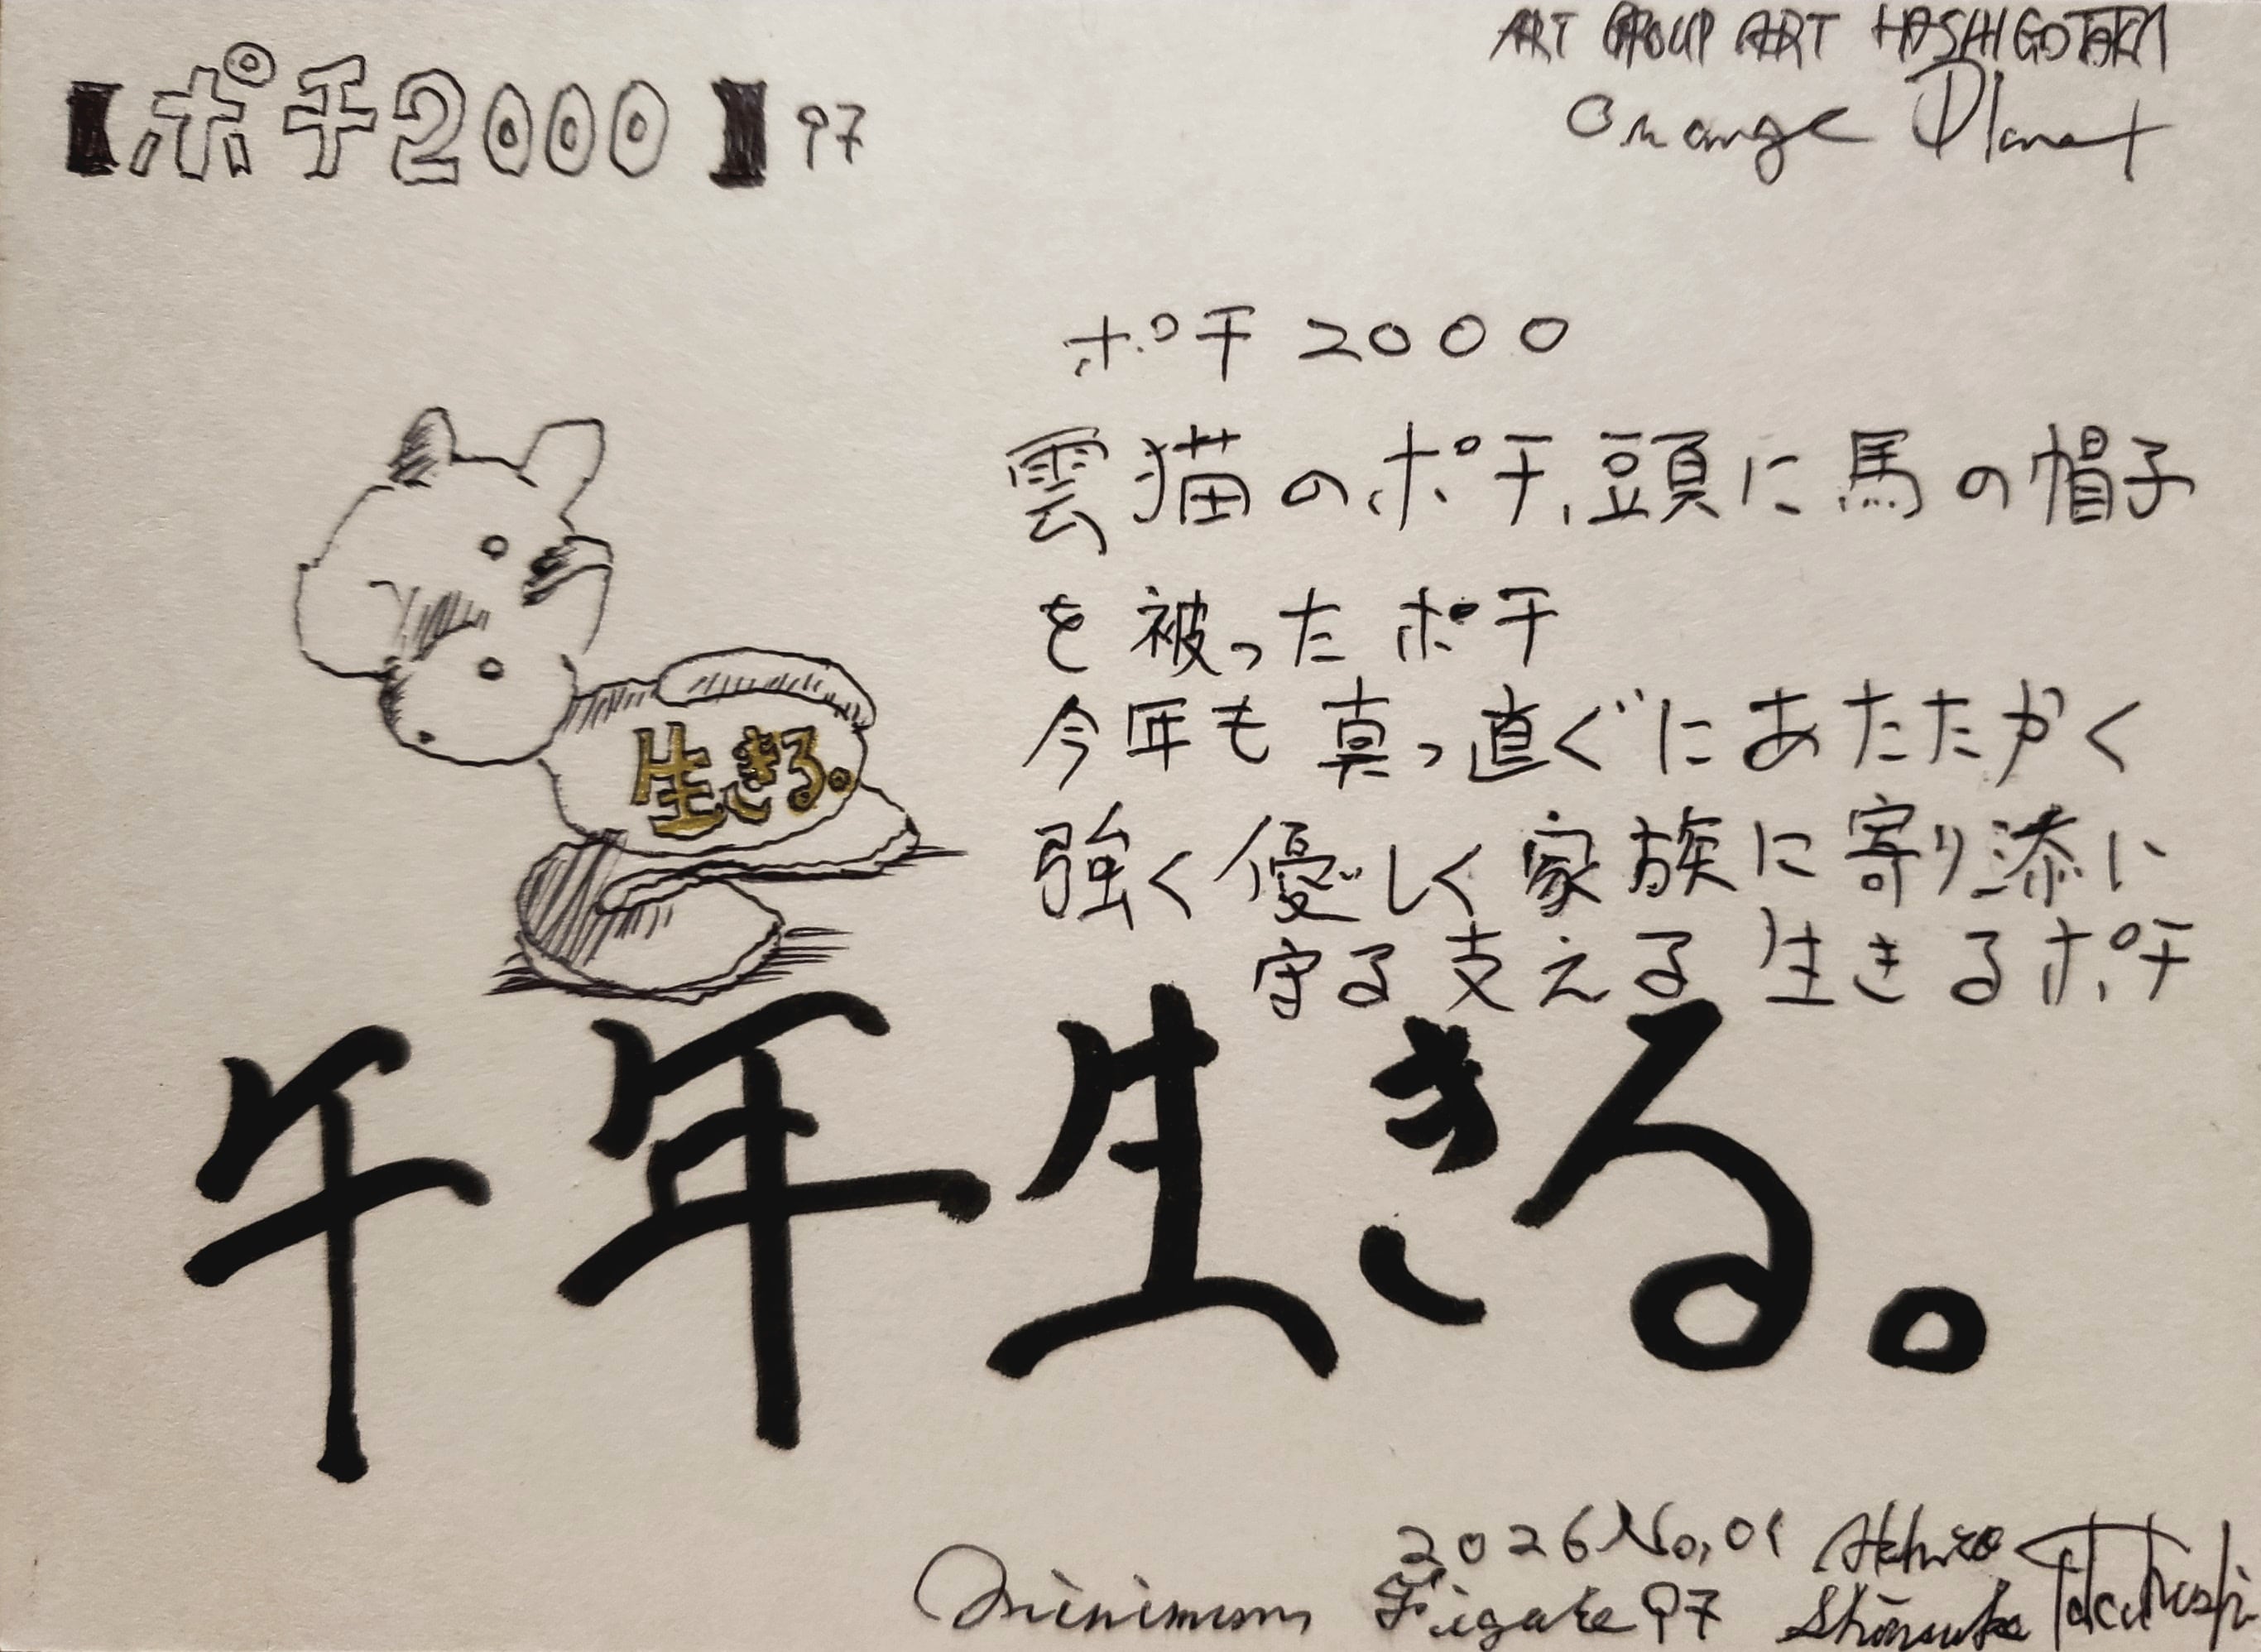 【ポチ2000】97
ART GROUP ART HASHIGOTAKA
Orange Planet
ポチ2000
雲猫のポチ、頭に馬の帽子
を被ったポチ
今年も真っ直ぐにあたたかく
強く優しく家族に寄り添い
守る支える生きるポチ
生きる。
午年生きる。
2026 No,01 Akihiro
minimum Figure 97 Shinsuke Takahashi